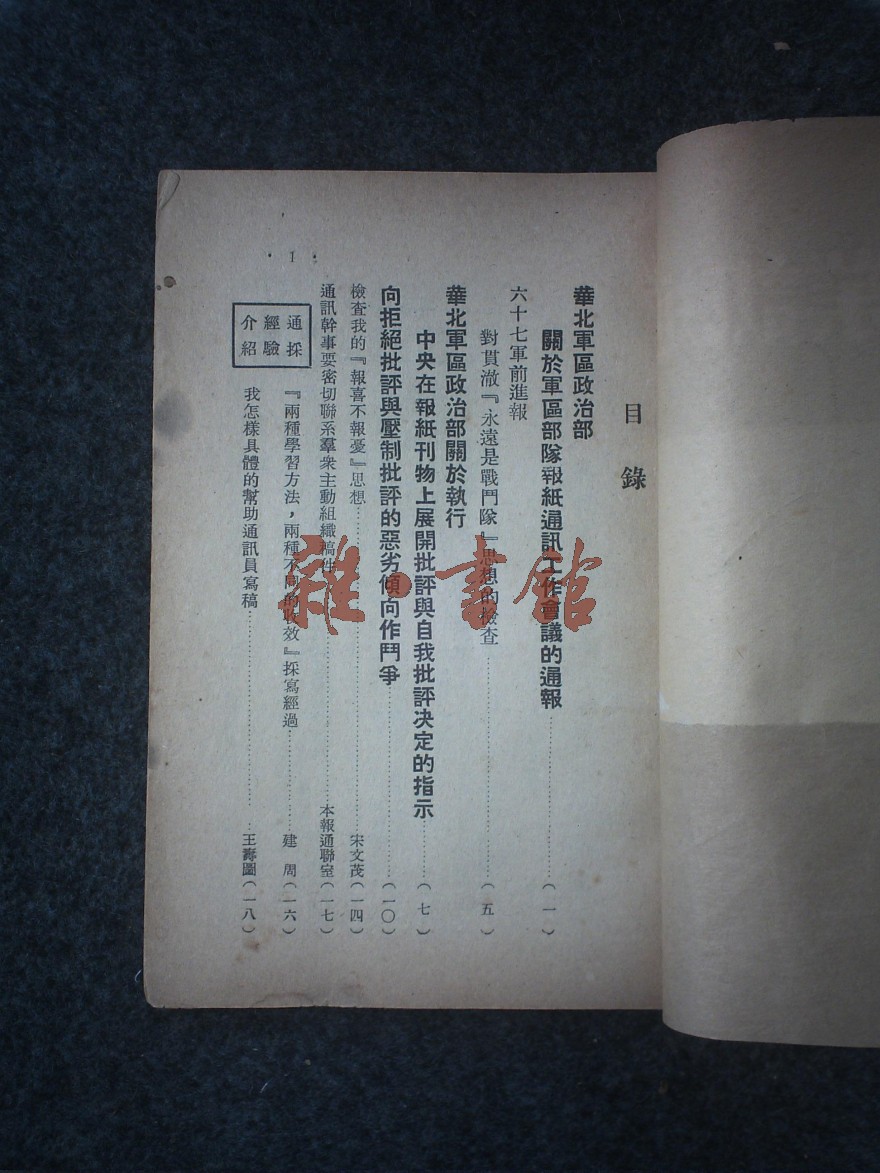 目錄
華北軍區政治部
關於軍區部隊報紙通訊工作會議的通報……(一)
六十七軍前進報
對貫澈『永遠是戰鬥隊』思想的檢查……(五)
華北軍區政治部關於執行
中央在報紙刊物上展開批評與自我批評决定的指示……(七)
向拒絕批評與壓制批評的惡劣傾向作鬥爭……(一〇)
檢查我的『報喜不報憂』思想……宋文茂(一四)
通訊幹事要密切聯系羣衆主動組織稿件……本報通聯室(一七)
通採
經驗
介紹
『兩種學習方法,兩種不同的收效』採寫經過……建周(一六)
我怎樣具體的幫助通訊員寫稿……王壽圖(一八)
1
雜·書館